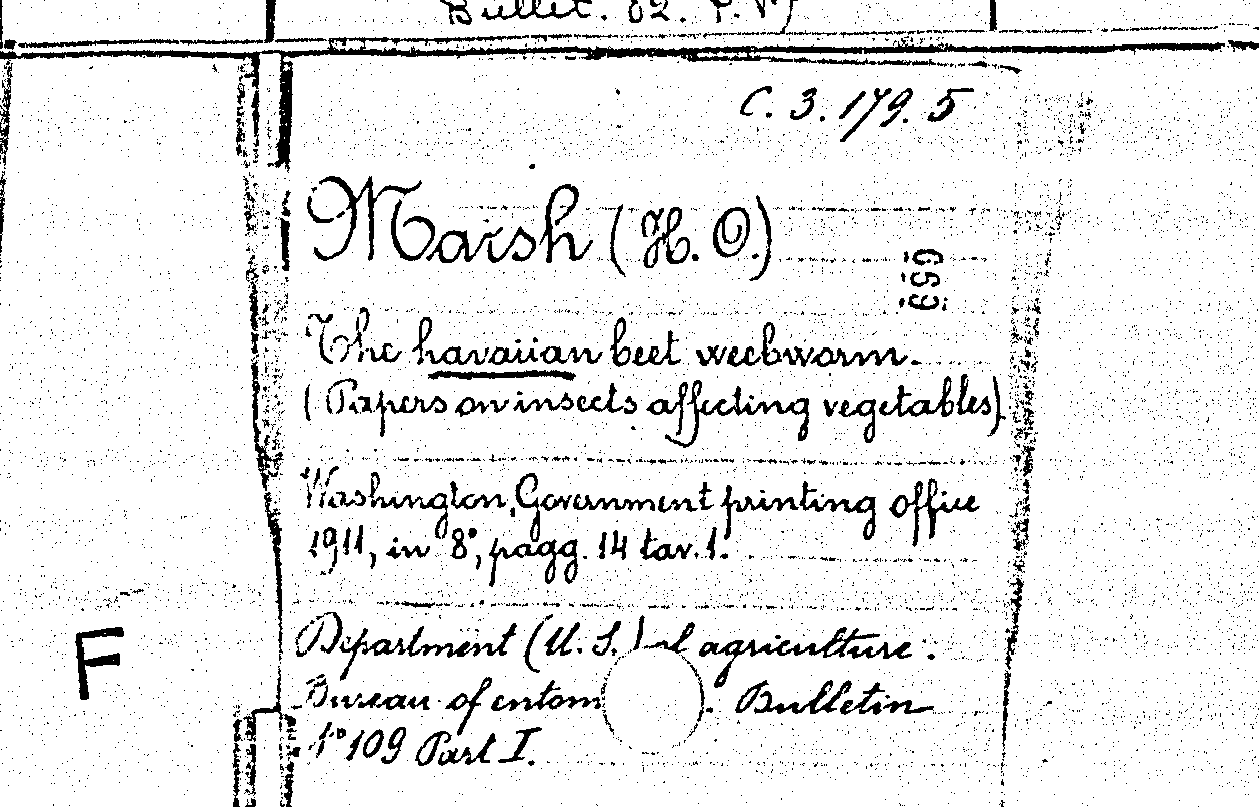 Bullet. 82. P. VI)
C. 3. 179. 5
Marsh (H. O.)
The havaiian beet weebworm.
(Papers on insects affecting vegetables).
Washington, Government printing office
1911, in 8°, pagg. 14 tav. 1.
Department (U. S.) of agriculture.
F
Bureau of entom . Bulletin
N° 109 Part I.